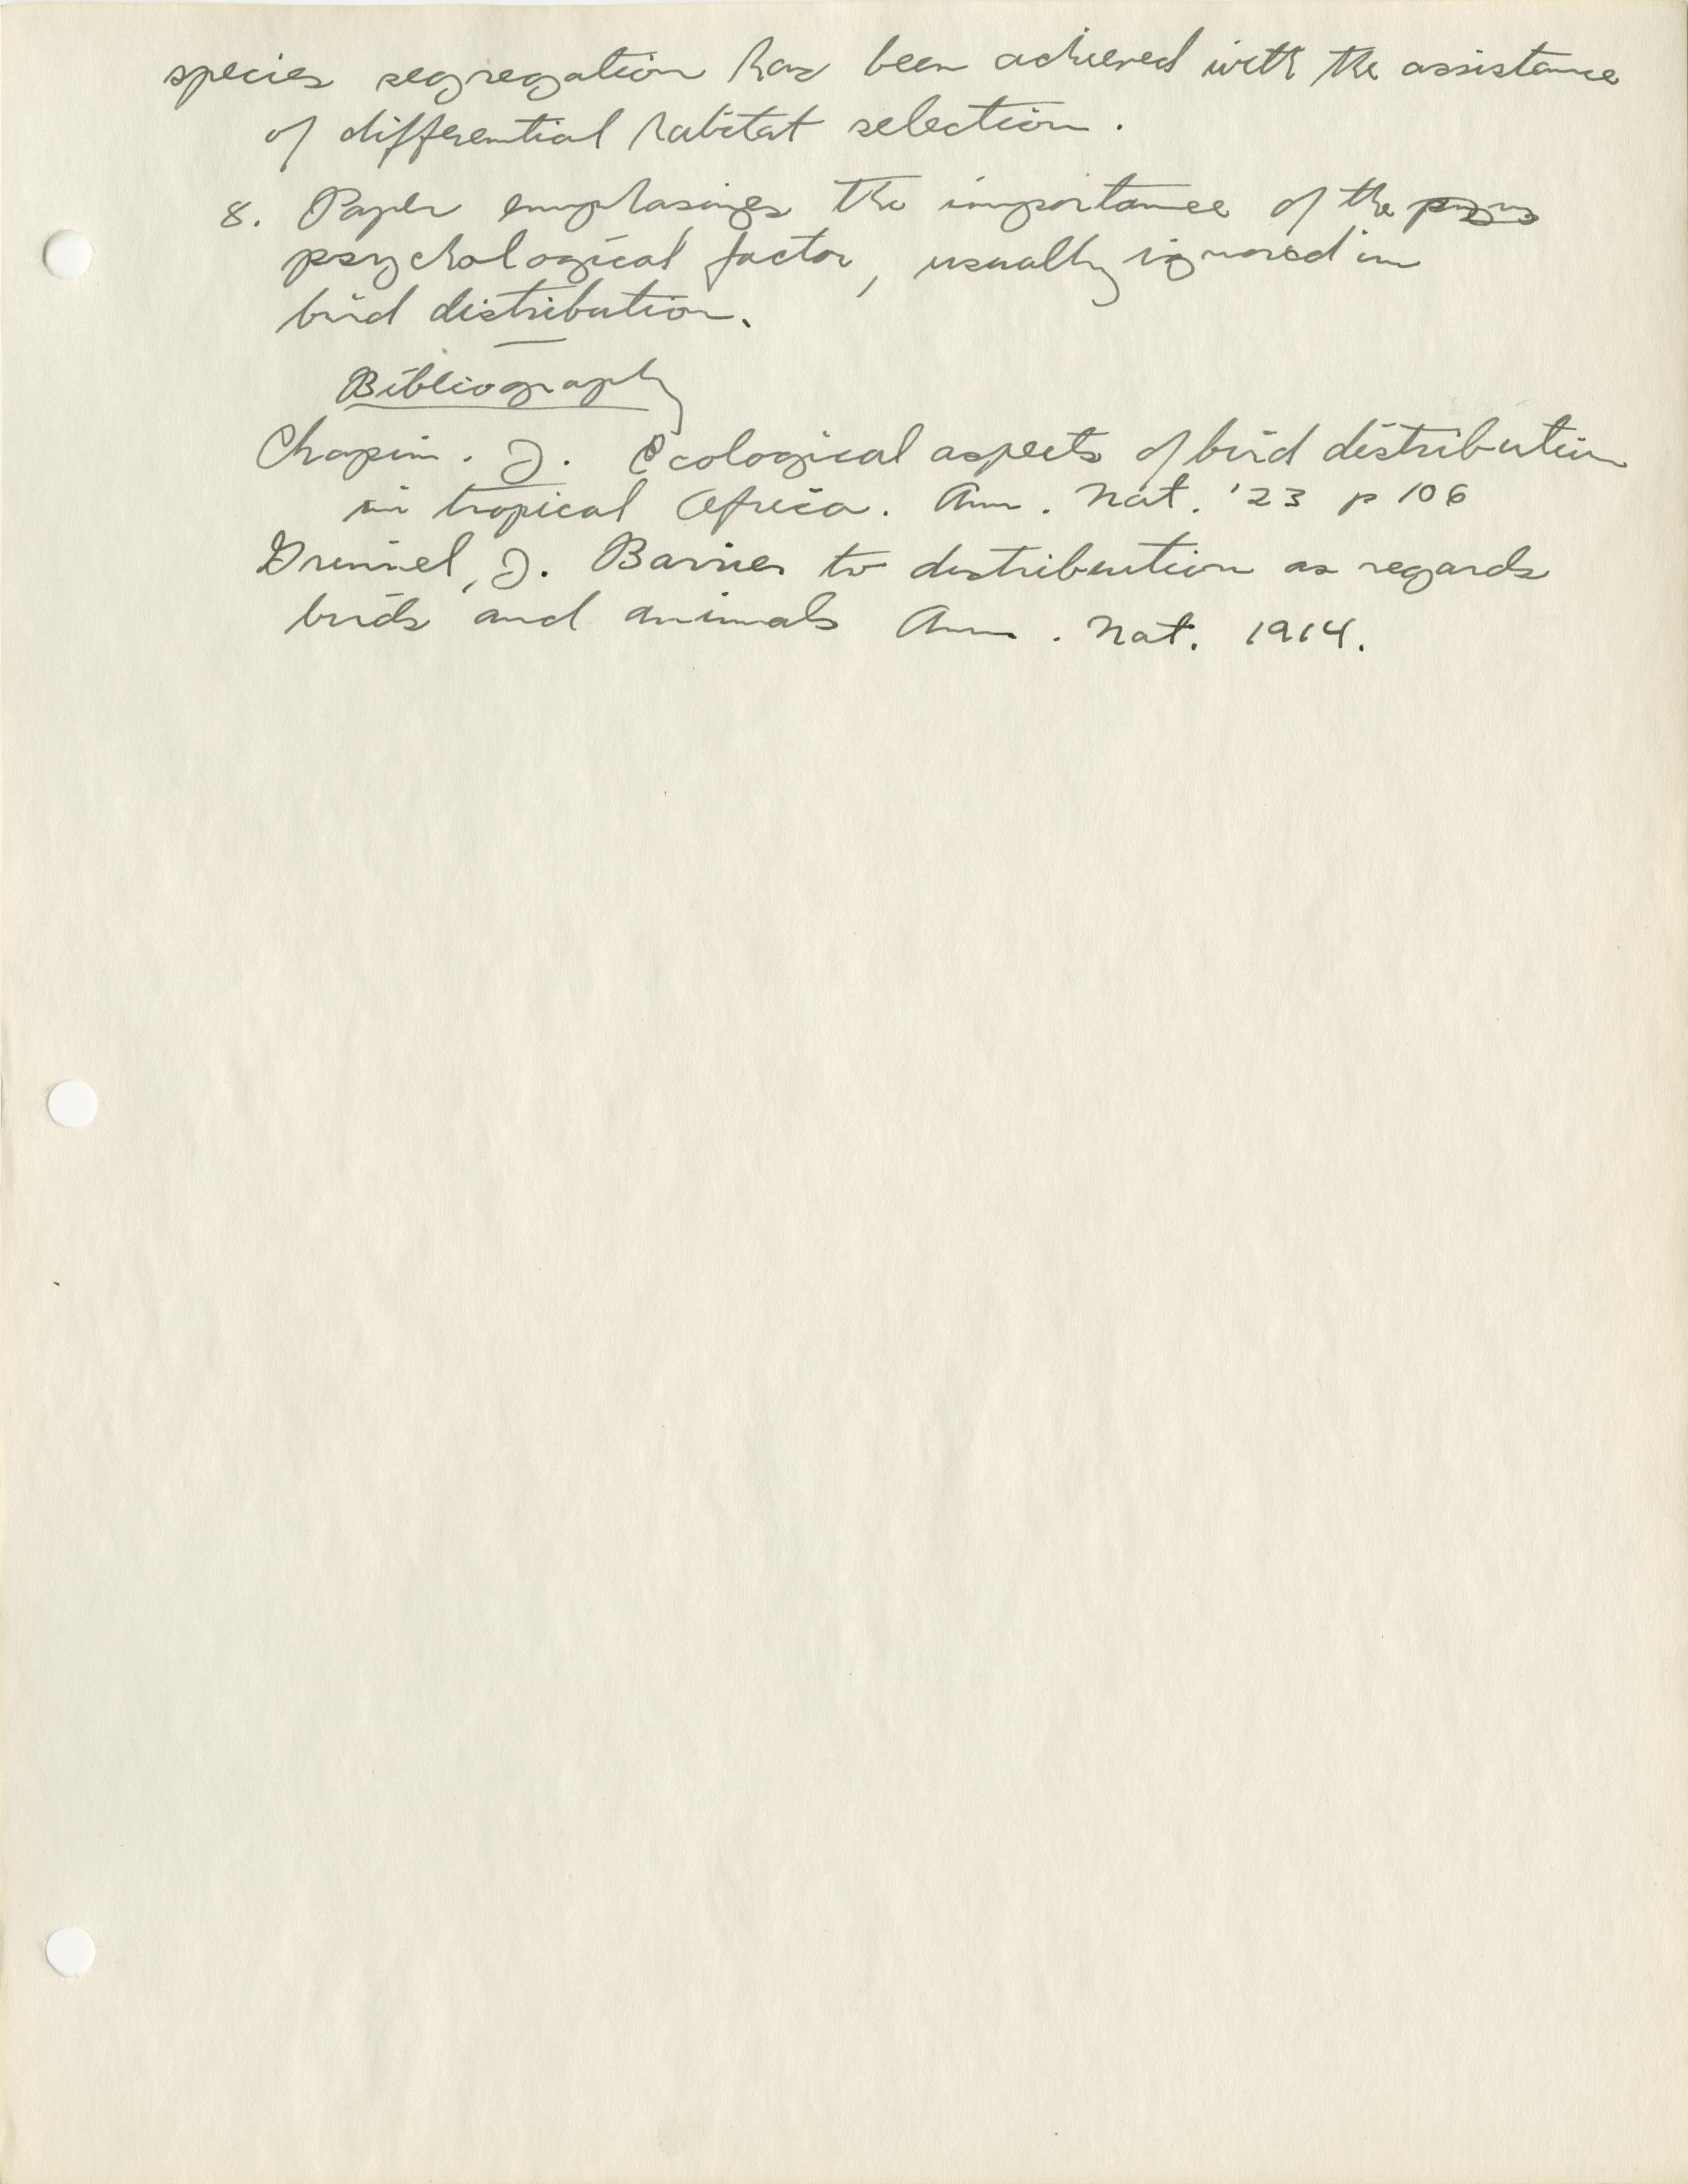 species segregation has been achieved with the assistance
of differential habitat selection.
8. Paper emphasizes the importance of the
psychological factor, usually ignored in
bird distribution.
Bibliography
Chapin. J. Ecological aspects of bird distribution
in tropical Africa. Am. Nat. '23 p 106
Grinnel, J. Barrier to distribution as regards
birds and animals Am. Nat. 1914.